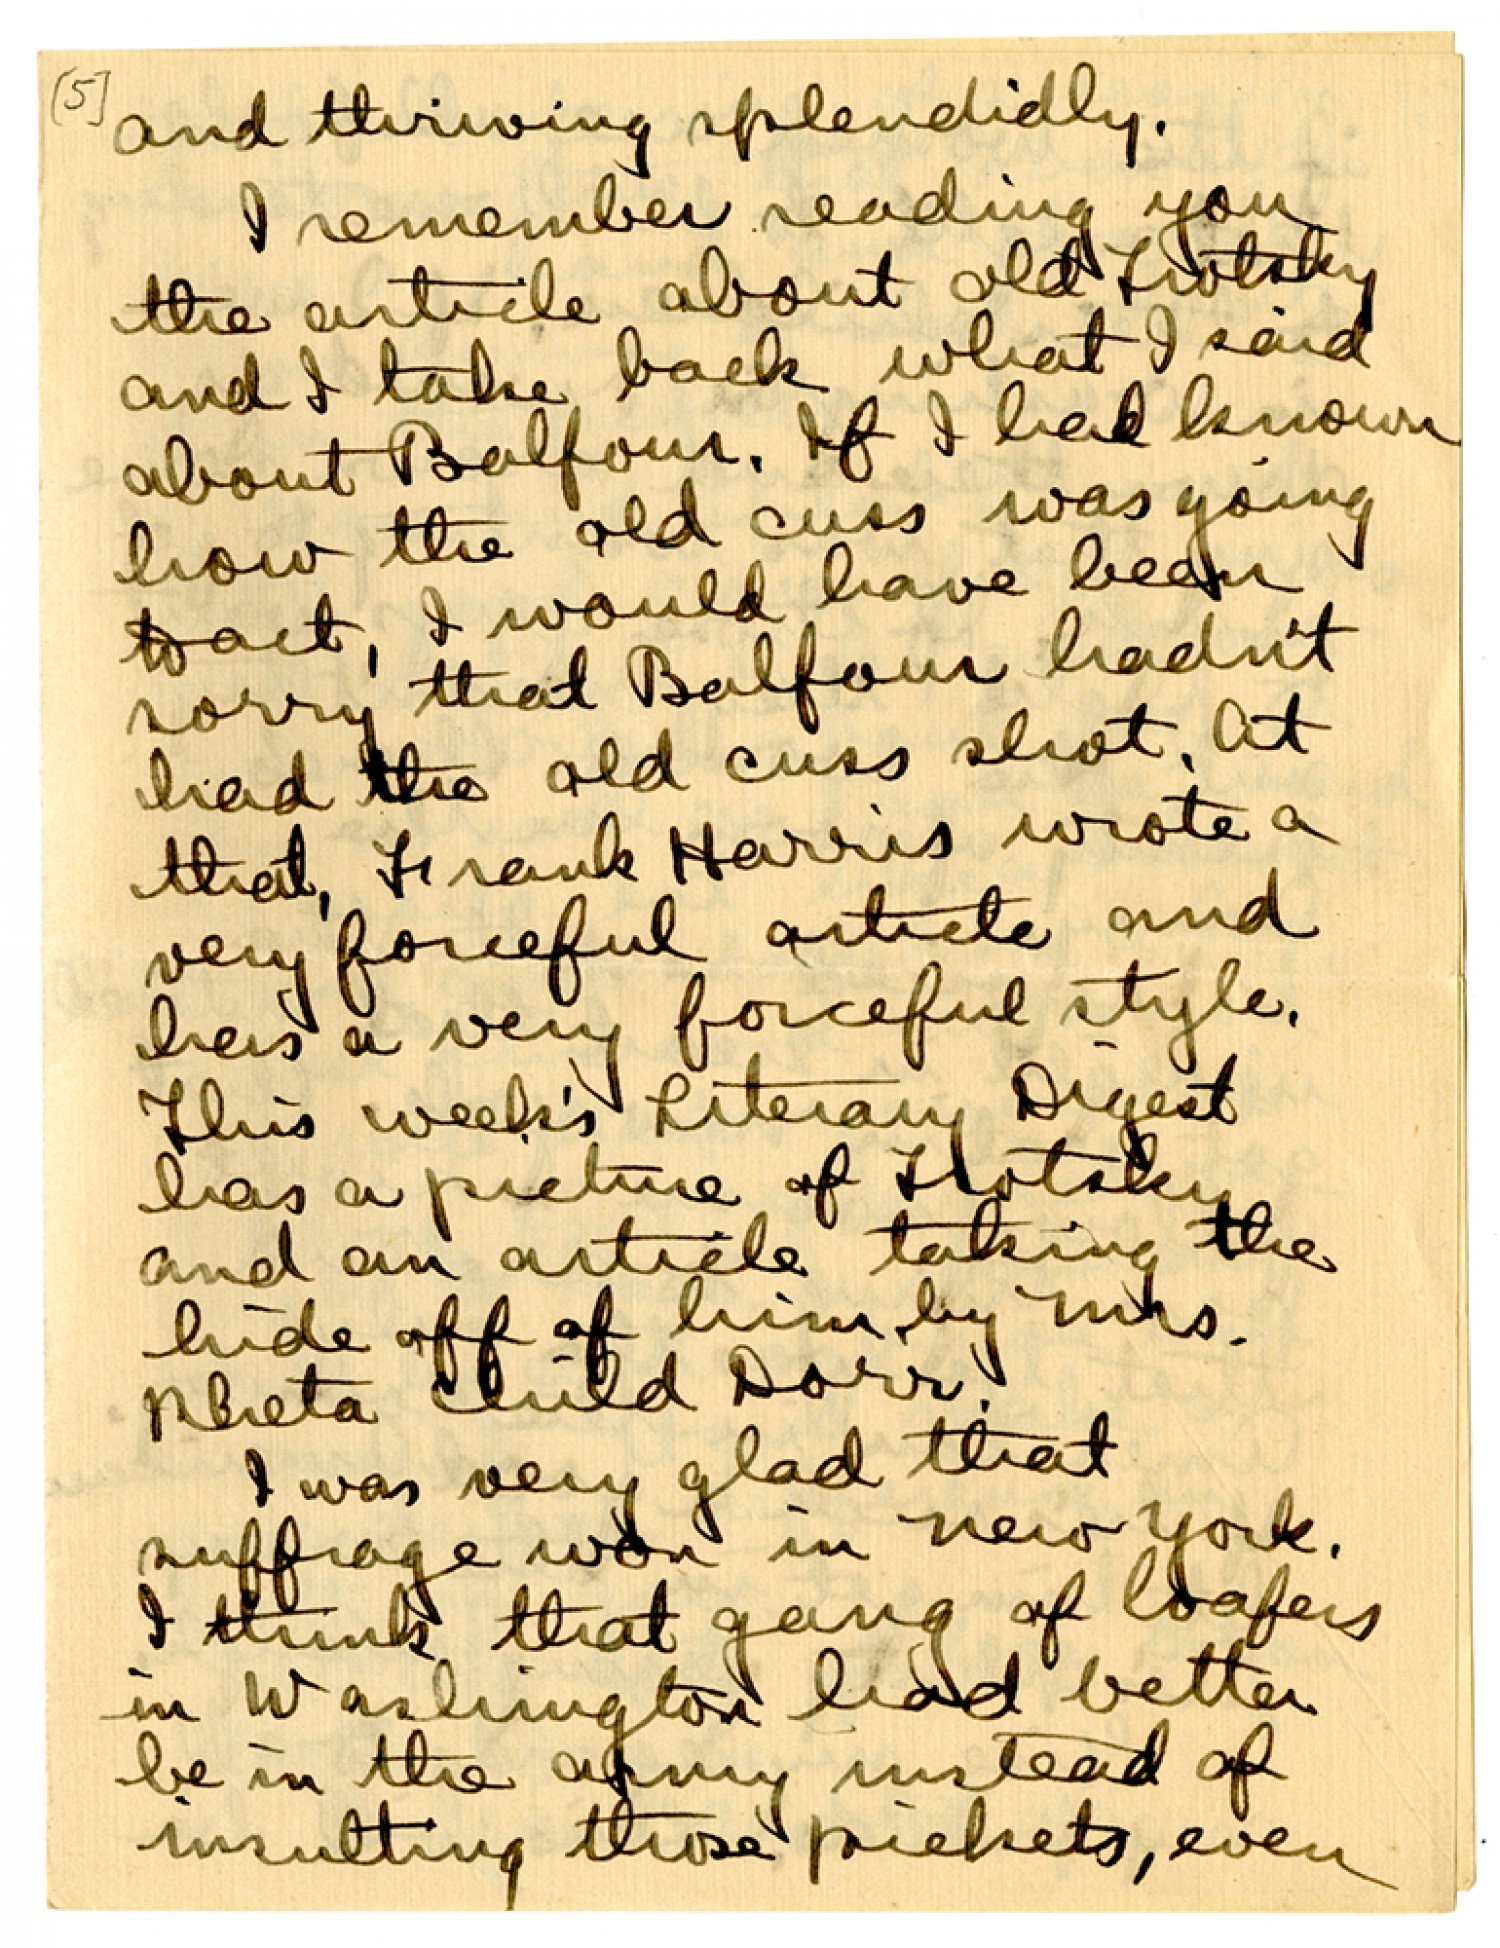 [5]
and thriving splendidly.
I remember reading you
the article about old Trotsky
and I take back what I said
about Balfour. If I had known
how the old cuss was going
to act, I would have been
sorry that Balfour hadn't
had the old cuss shot. At
that, Frank Harris wrote a
very forceful article and
has a very forceful style.
This week's Literary Digest
has a picture of Trotsky
and an article taking the
hide off of him by Mrs.
Rheta Child Dorr.
I was very glad that
suffrage won in New York.
I think that gang of loafers
in Washington had better
be in the army instead of
insulting those pickets, even